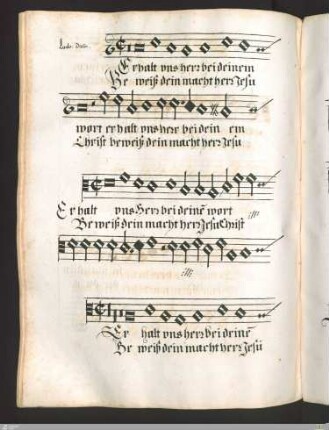 Erhalt vns herr bei deinem
Be weiß dein macht herr Jesu
wort erhalt vns herr bei dein em
Christ beweiß dein macht herr Jesu
Er halt vns Herr bei deinē wort
Be weiß dein macht herr Jesu Christ
Er halt vns herr bei deinē
Be weiß dein macht herr Jesu